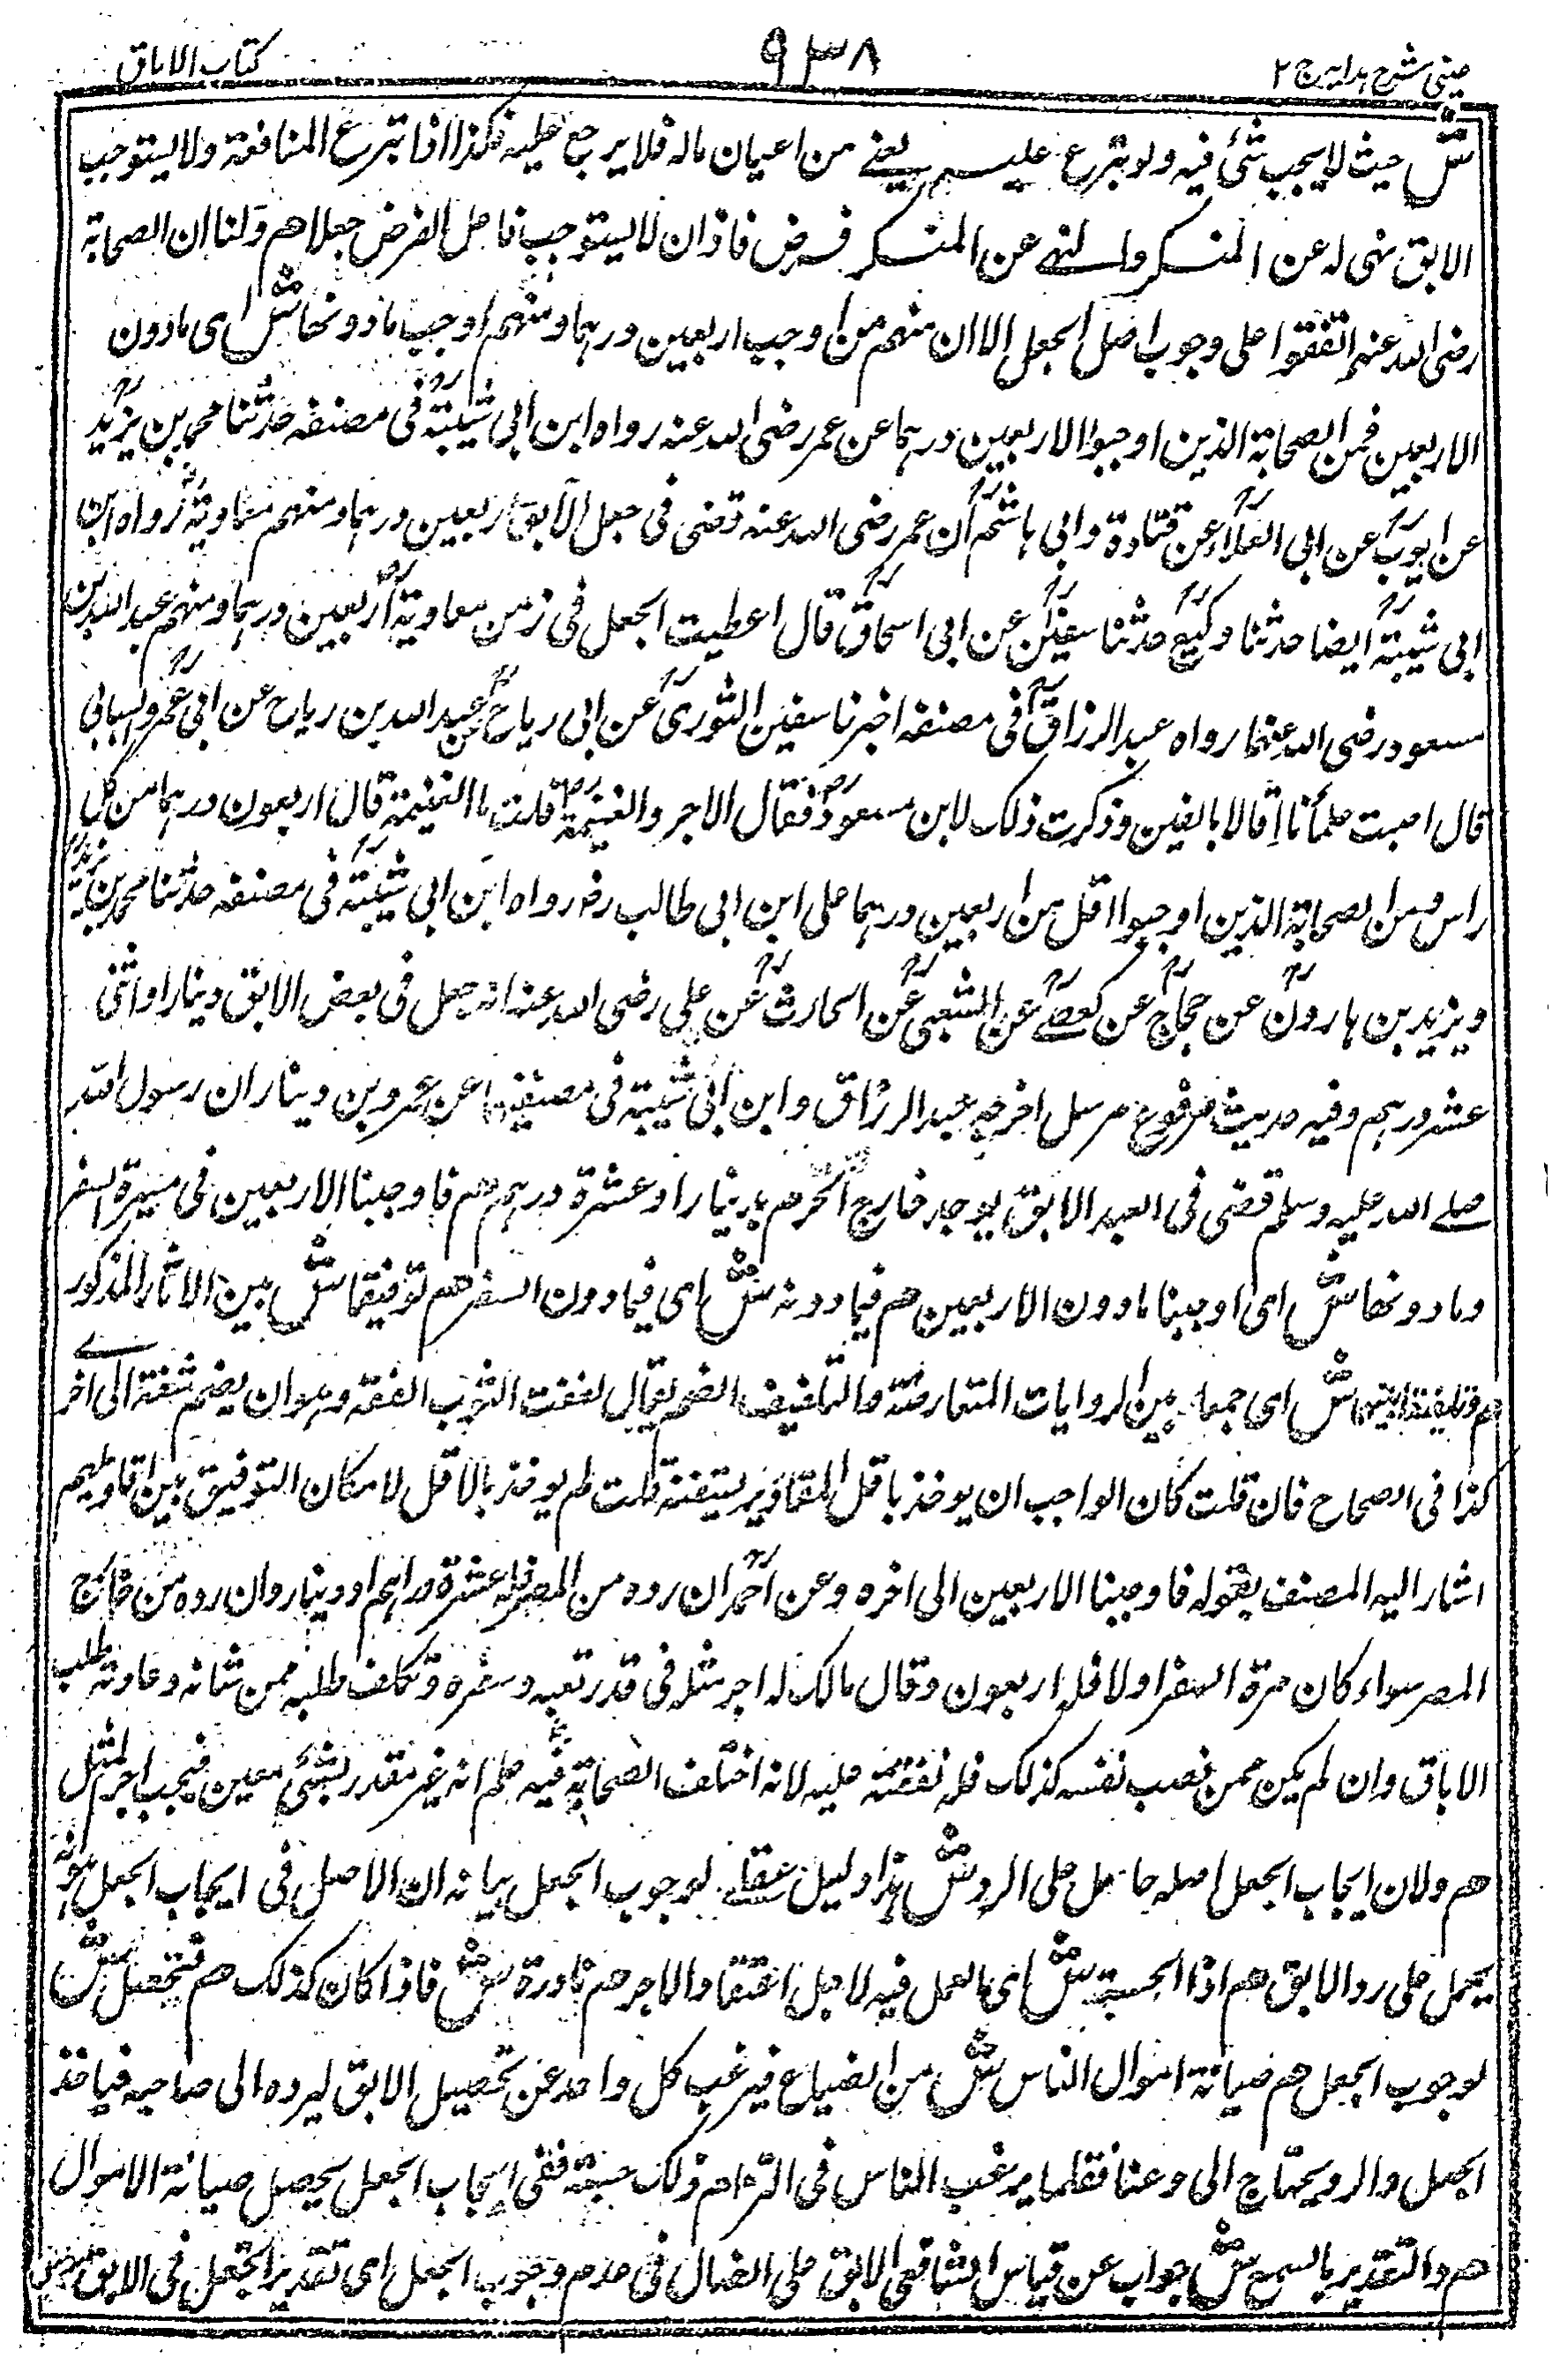 عینی شرح ہدایہ ج ٢
٩٣٨
کتاب الاباق
ش حیث لا یجب شئ فیه ولو تبرع علیه یعنی من اعیان ماله فلا یرجع علیه فکذا اذا تبرع المنافعة ولا یستوجب
الابق نهی له عن المنکر والنهی عن المنکر فرض فاذن لا یستوجب فاعل الفرض جعلا هم ولنا ان الصحابة
رضی الله عنهم اتفقوا علی وجوب اصل الجعل الا ان منهم من اوجب اربعین درہما ومنهم اوجب ما دونها ش ای ما دون
الاربعین فمن الصحابة الذین اوجبوا الاربعین درہما عن عمر رضی الله عنه رواه ابن ابی شیبة فی مصنفه حدثنا محمد بن یزید
عن ایوب عن ابی العلاء عن قتادة وابی ہاشم ان عمر رضی الله عنه قضی فی جعل الآبق اربعین درہما ومنهم معاویة رواه ابن
ابی شیبة ایضا حدثنا وکیع حدثنا سفین عن ابی اسحاق قال اعطیت الجعل فی زمن معاویة اربعین درہما ومنهم عبد الله بن
مسعود رضی الله عنهما رواه عبد الرزاق فی مصنفه اخبرنا سفین الثوری عن ابی ریاح عن عبد الله بن ریاح عن ابی عمرو الشیبانی
قال اصبت غلمانا اقالا بالعین وذکرت ذلک لابن مسعود فقال الاجر والغنیمة قلت ما الغنیمة قال اربعون درہما من کل
راس ومن الصحابة الذین اوجبوا اقل من اربعین درہما علی ابن ابی طالب رواه ابن ابی شیبة فی مصنفه حدثنا محمد بن یزید
ویزید بن ہارون عن حجاج عن حصین عن الشعبی عن الحارث عن علی رضی الله عنه انه جعل فی بعض الابق دینارا واثنی
عشر درہم وفیه حدیث مرفوع مرسل اخرجه عبد الرزاق وابن ابی شیبة فی مصنفیهما عن عمرو بن دینار ان رسول الله
صلے الله علیه وسلم قضی فی العبد الابق یوجد خارج الحرم بدینار او عشرة درہم هم فاوجبنا الاربعین فی مسیرة السفر
وما دونها ش ای اوجبنا ما دون الاربعین هم فیما دونه ش ای فیما دون السفر هم توفیقا ش بین الاثار المذکور
هم وتلفیقا بینهما ش ای جمعا بین الروایات المتعارضة والتلفیف الضم یقال لفقت الثوب الفقه وہو ان یضم شقة الی اخرے
کذا فی الصحاح فان قلت کان الواجب ان یوخذ باقل المقادیر لتیقنه قلت لم یوخذ بالاقل لامکان التوفیق بین اقاویلهم
اشار الیه المصنف بقوله فاوجبنا الاربعین الی اخره وعن احمد ان رده من المصر فله عشرة دراہم او دینار وان رده من خارج
المصر سواء کان مدة السفر او لا فله اربعون وقال مالک له اجر مثله فی قدر تعبه وسفره وتکلف طلبه ممن شانه وعادته طلب
الاباق وان لم یکن ممن نصب نفسه کذلک فله نفقته علیه لانه اختلف الصحابة فیه علم انه غیر مقدر بشئ معین فیجب اجر المثل
هم ولان ایجاب الجعل اصله حامل علی الرد ش ہذا دلیل عقلے لوجوب الجعل بیانه ان الاصل فی ایجاب الجعل ہو انه
یحمل علی رد الابق هم اذا الحسبة ش ای العمل فیه لاجل اعتقاد الاجر هم نادرة ش فاذا کان کذلک هم فتحصل ش
لوجوب الجعل هم صیانة اموال الناس ش من الضیاع فیرغب کل واحد عن تحصیل الابق لیرده الی صاحبه فیاخذ
الجعل والرد یحتاج الی وعنا فقلما یرغب الناس فی التزام ذلک حسبة ففی ایجاب الجعل یحصل صیانة الاموال
هم والتقدیر بالسمع ش جواب عن قیاس الشافعی الابق علی الضال فی عدم وجوب الجعل ای تقدیر الجعل فی الابق